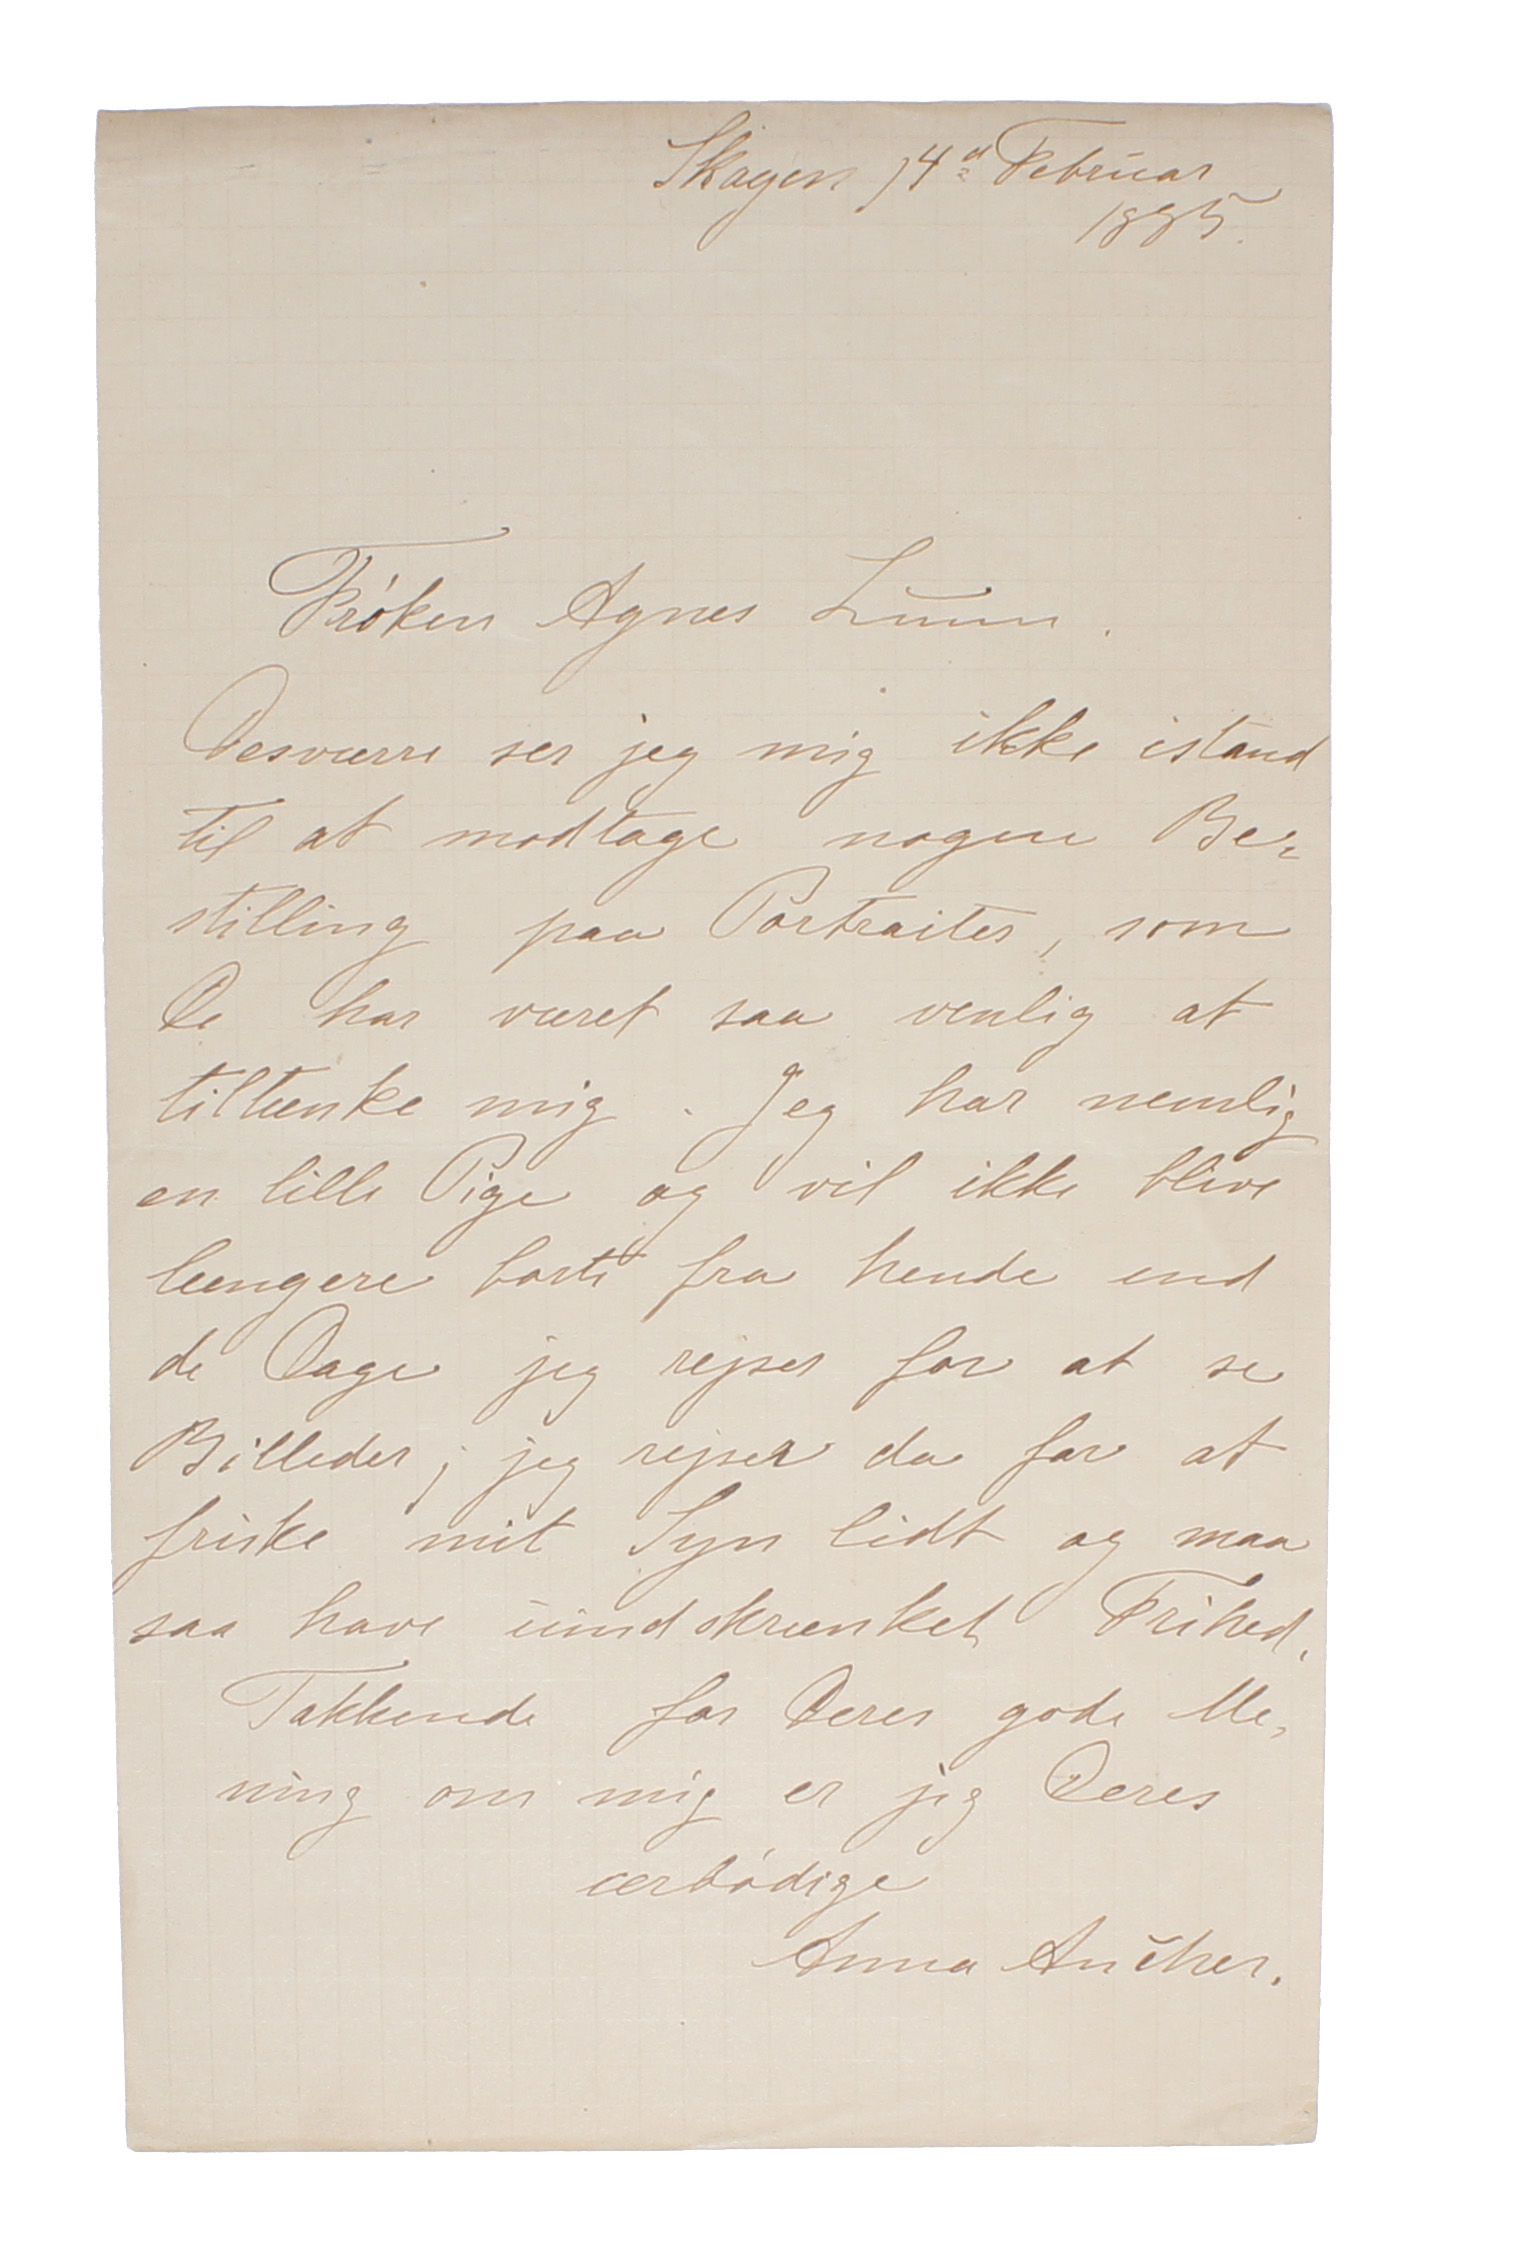 Skagen 14d Februar
1885.
Frøken Agnes Lunn.
Desværre ser jeg mig ikke istand
til at modtage nogen Be=
stilling paa Portraiter, som
De har været saa venlig at
tiltænke mig. Jeg har nemlig
en lille Pige og vil ikke blive
længere borte fra hende end
de Dage jeg rejser for at se
Billeder; jeg rejser da for at
friske mit Syn lidt og maa
saa have uindskrænket Frihed.
Takkende for Deres gode Me-
ning om mig er jeg Deres
ærbødige
Anna Ancher.